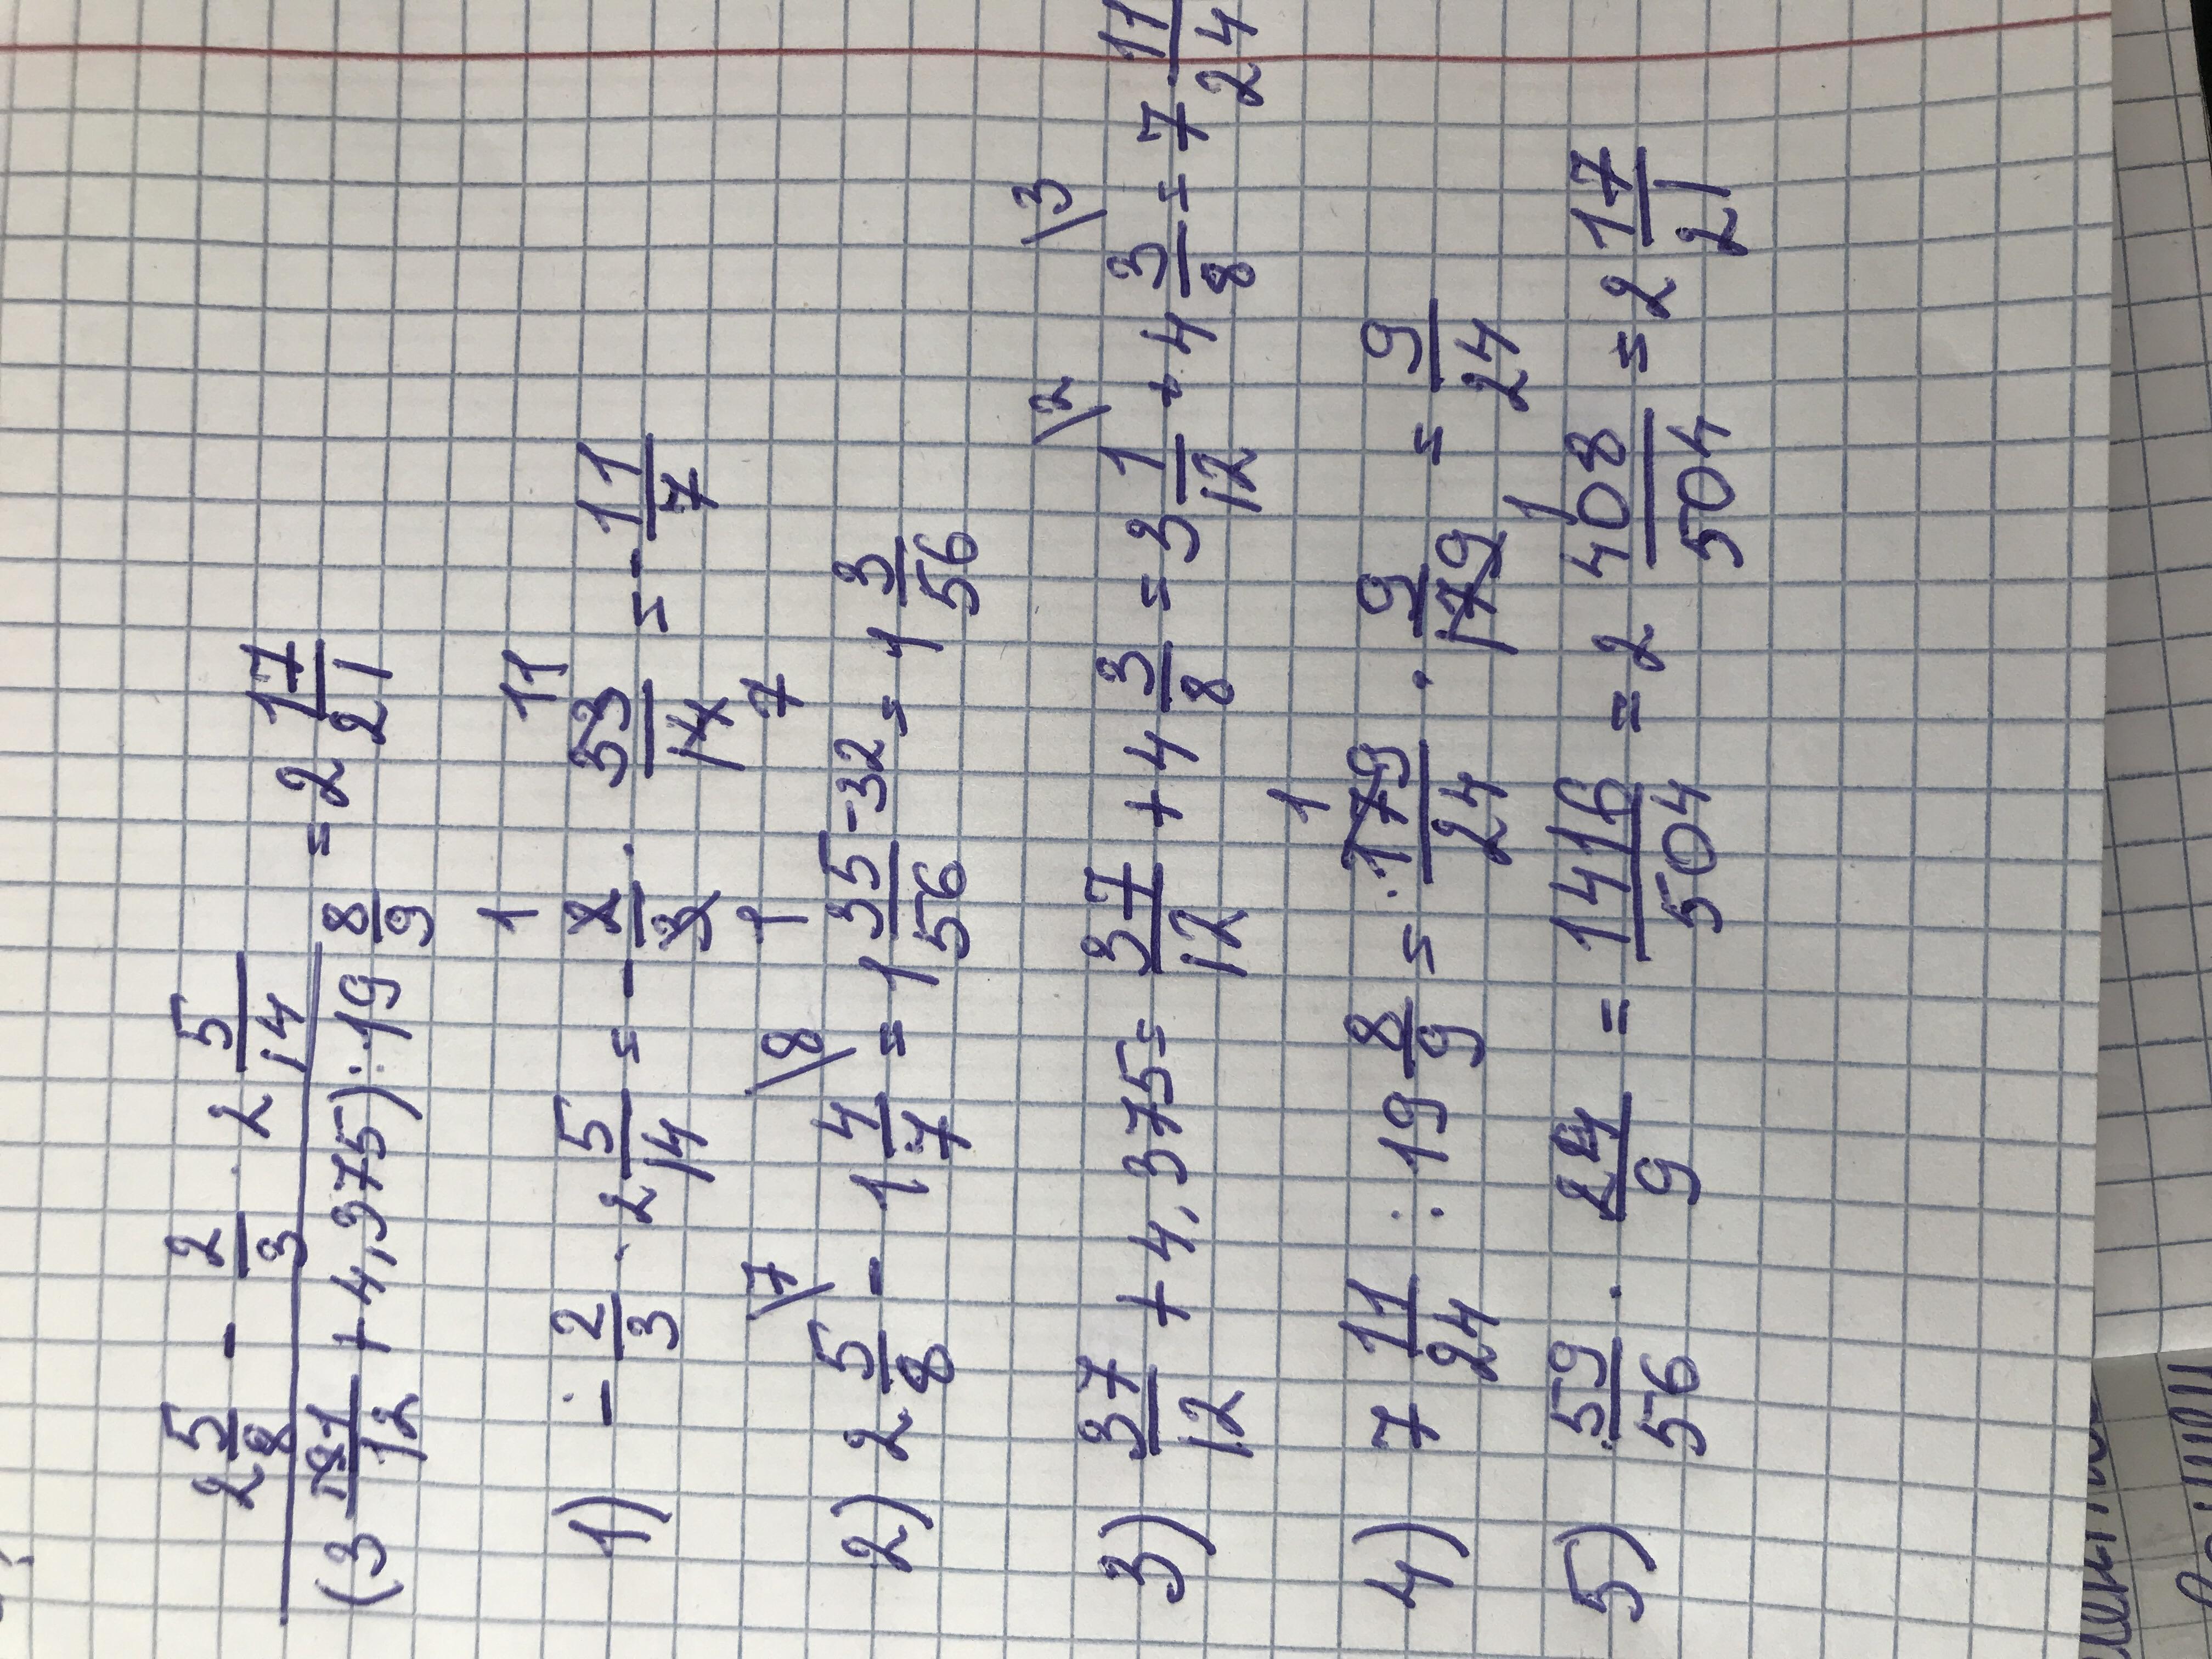 2 5/8 - 2/3 · 2 5/14
(3 1/12 + 4,375) : 19 8/9 = 2 17/21
1) - 2/3 · 2 5/14 = - 2/3 · 33/14 = - 11/7
1 11
1 7
2) 2 5/8 \7 - 1 4/7 \8 = 1 35-32/56 = 1 3/56
3) 37/12 + 4,375 = 37/12 + 4 3/8 = 3 1/12 \2 + 4 3/8 \3 = 7 11/24
4) 7 11/24 : 19 8/9 = 179/24 · 9/179 = 9/24
1
1
5) 59/56 · 24/9 = 1416/504 = 2 408/504 = 2 17/21